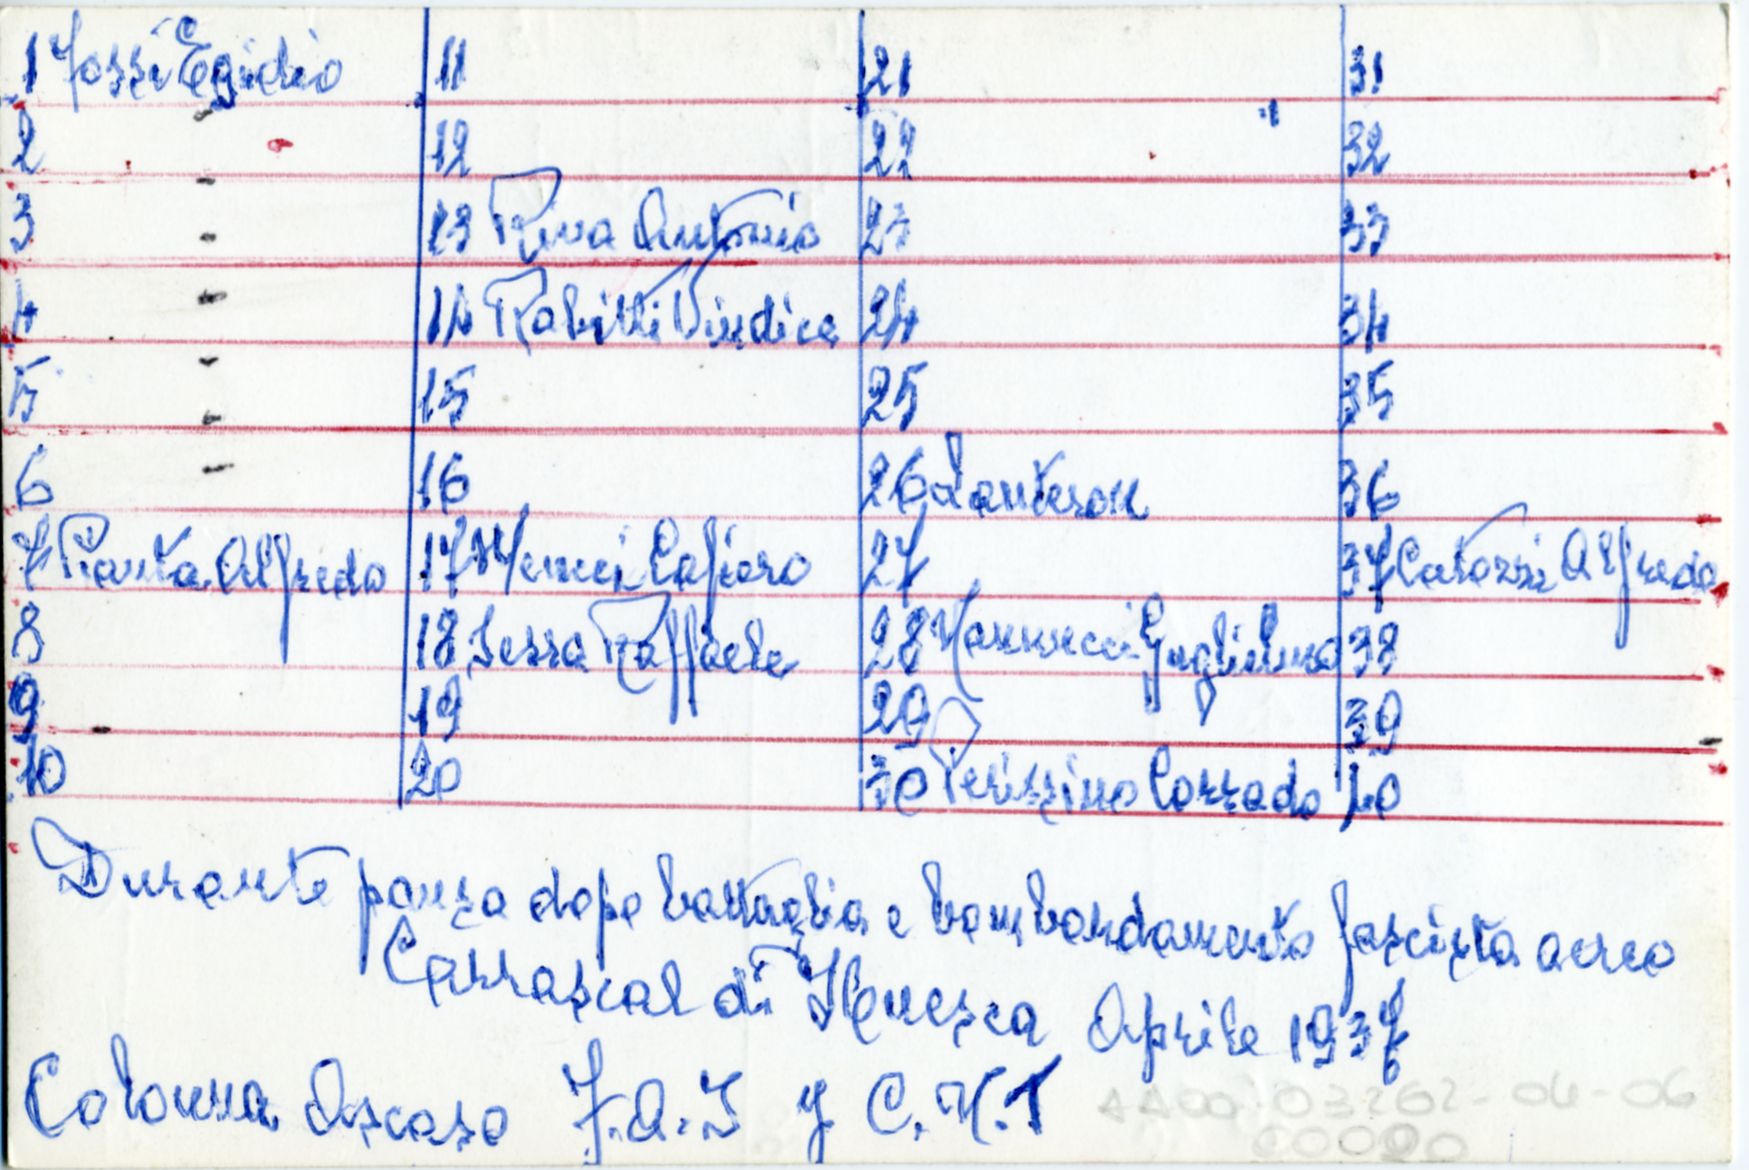 1 Fossi Egidio 11 21 31
2 12 22 32
3 13 Riva Antonio 23 33
4 14 Rabitti Vindice 24 34
5 15 25 35
6 16 26 Lanteron 36
7 Pianta Alfredo 17 Menci Cafiero 27 37 Catozzi Alfredo
8 18 Serra Raffaele 28 Nannucci Guglielmo 38
9 19 29 39
10 20 30 Perissino Corrado 40
Durante pausa dopo battaglia e bombardamento fascista aereo
Carrascal di Huesca Aprile 1937
Colonna Ascaso F.A.I y C.N.T
03262-04-06
00020